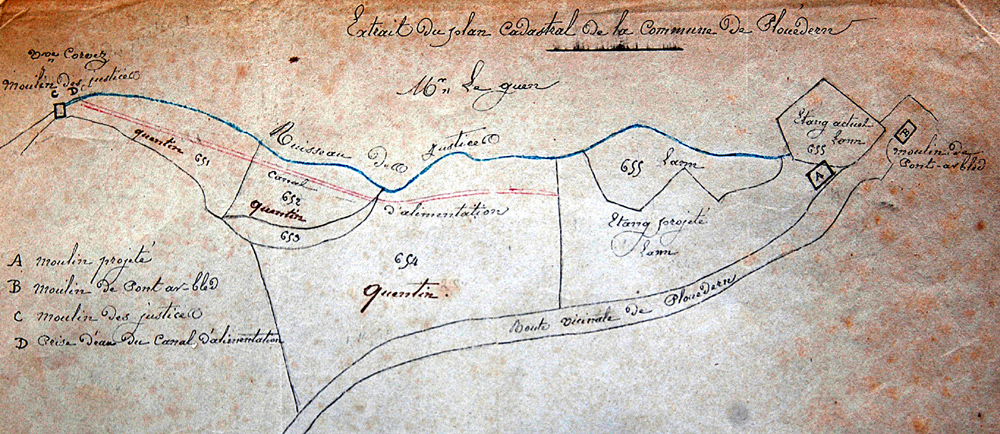 Extrait du plan Cadastral de la Commune de Plouédern
Vve Corvez
Moulin des justices
C D
Mr. Le guen
quentin 651
Ruisseau des justices
Canal d'alimentation
652
quentin
653
654
Quentin.
655 Lann
Etang projeté
Lann
Etang actuel
Lann
655
A
B
Moulin de
Pont-ar-bled
Route vicinale de Plouédern
A Moulin projeté
B Moulin de Pont ar bled
C Moulin des justices
D Prise d'eau du Canal d'alimentation